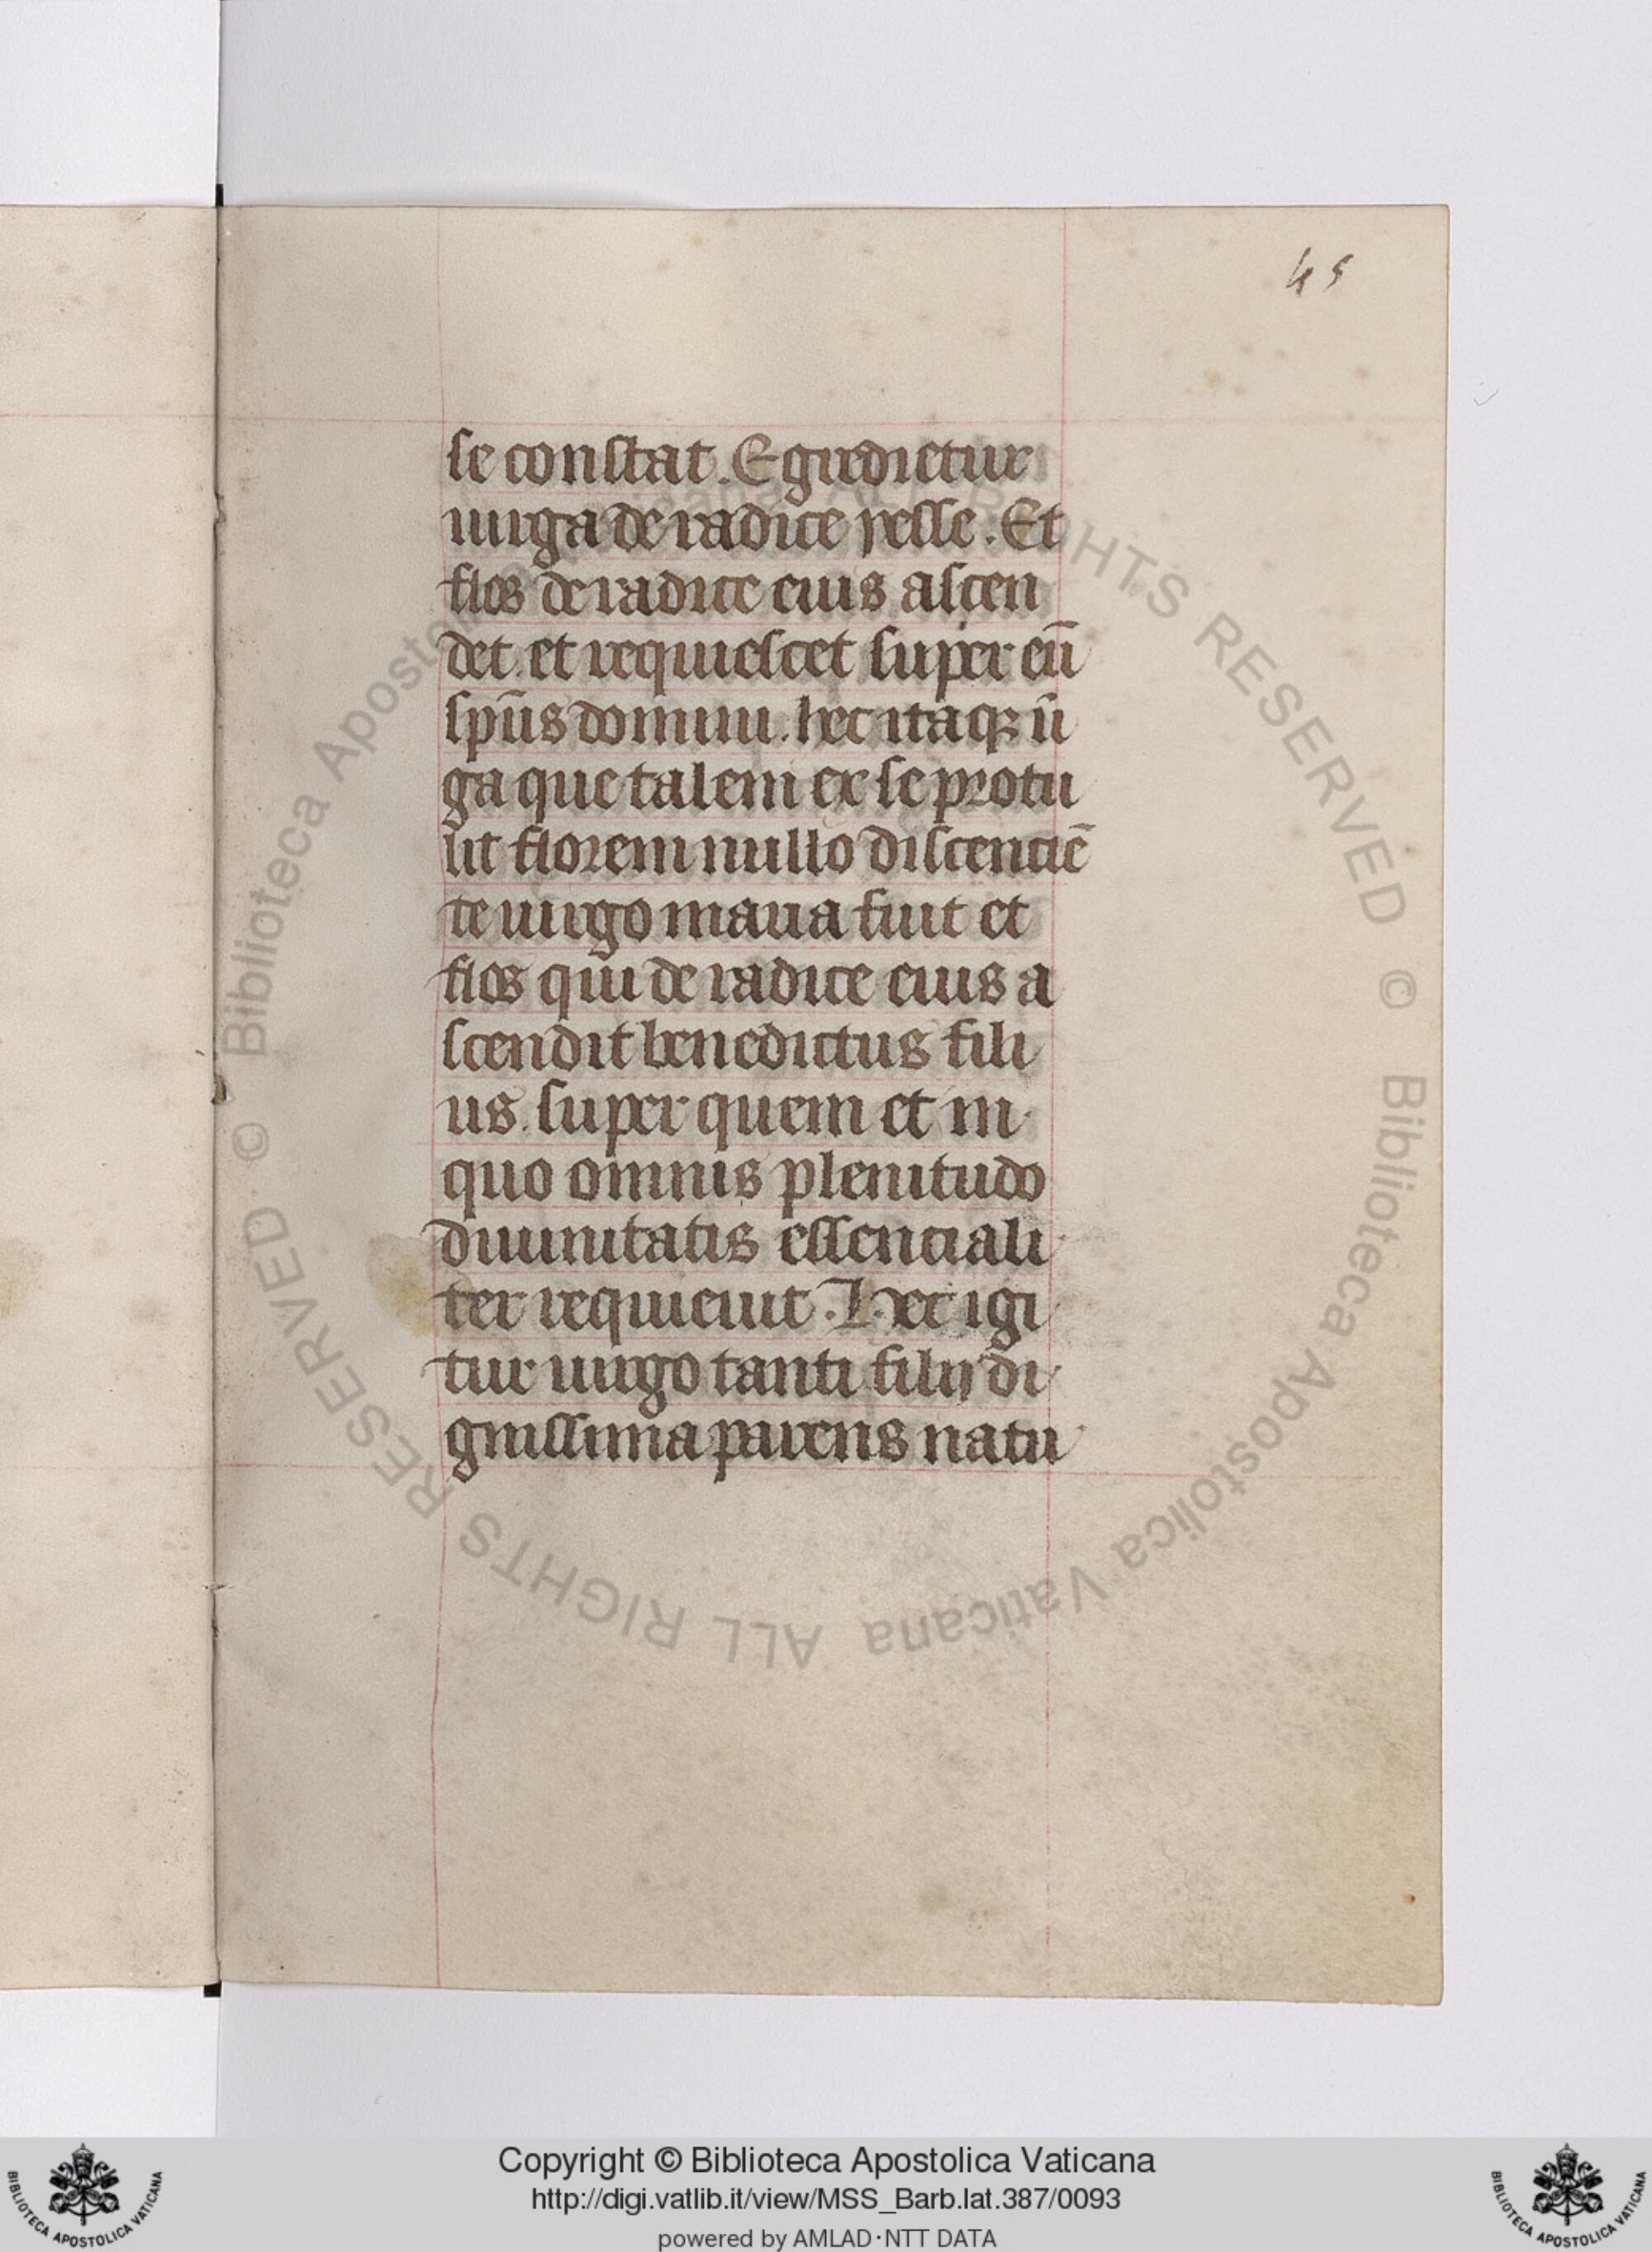 45
se constat. Egredietur
uirga de radice yesse. Et
flos de radice eius ascen
det. et requiescet super eū
sp̄us domini. hec itaqꝫ ūi
ga que talem ex se protu
lit florem nullo discenciē
te uirgo maria fuit et
flos qui de radice eius a
scendit benedictus fili
us. super quem et in
quo omnis plenitudo
diuinitatis essenciali
ter requieuit. Hec igi
tur uirgo tanti filij di
gnissima parens natu
© Biblioteca Apostolica Vaticana ALL RIGHTS RESERVED
© Biblioteca Apostolica Vaticana ALL RIGHTS RESERVED
Copyright © Biblioteca Apostolica Vaticana
http://digi.vatlib.it/view/MSS_Barb.lat.387/0093
powered by AMLAD·NTT DATA
BIBLIOTECA APOSTOLICA VATICANA
BIBLIOTECA APOSTOLICA VATICANA